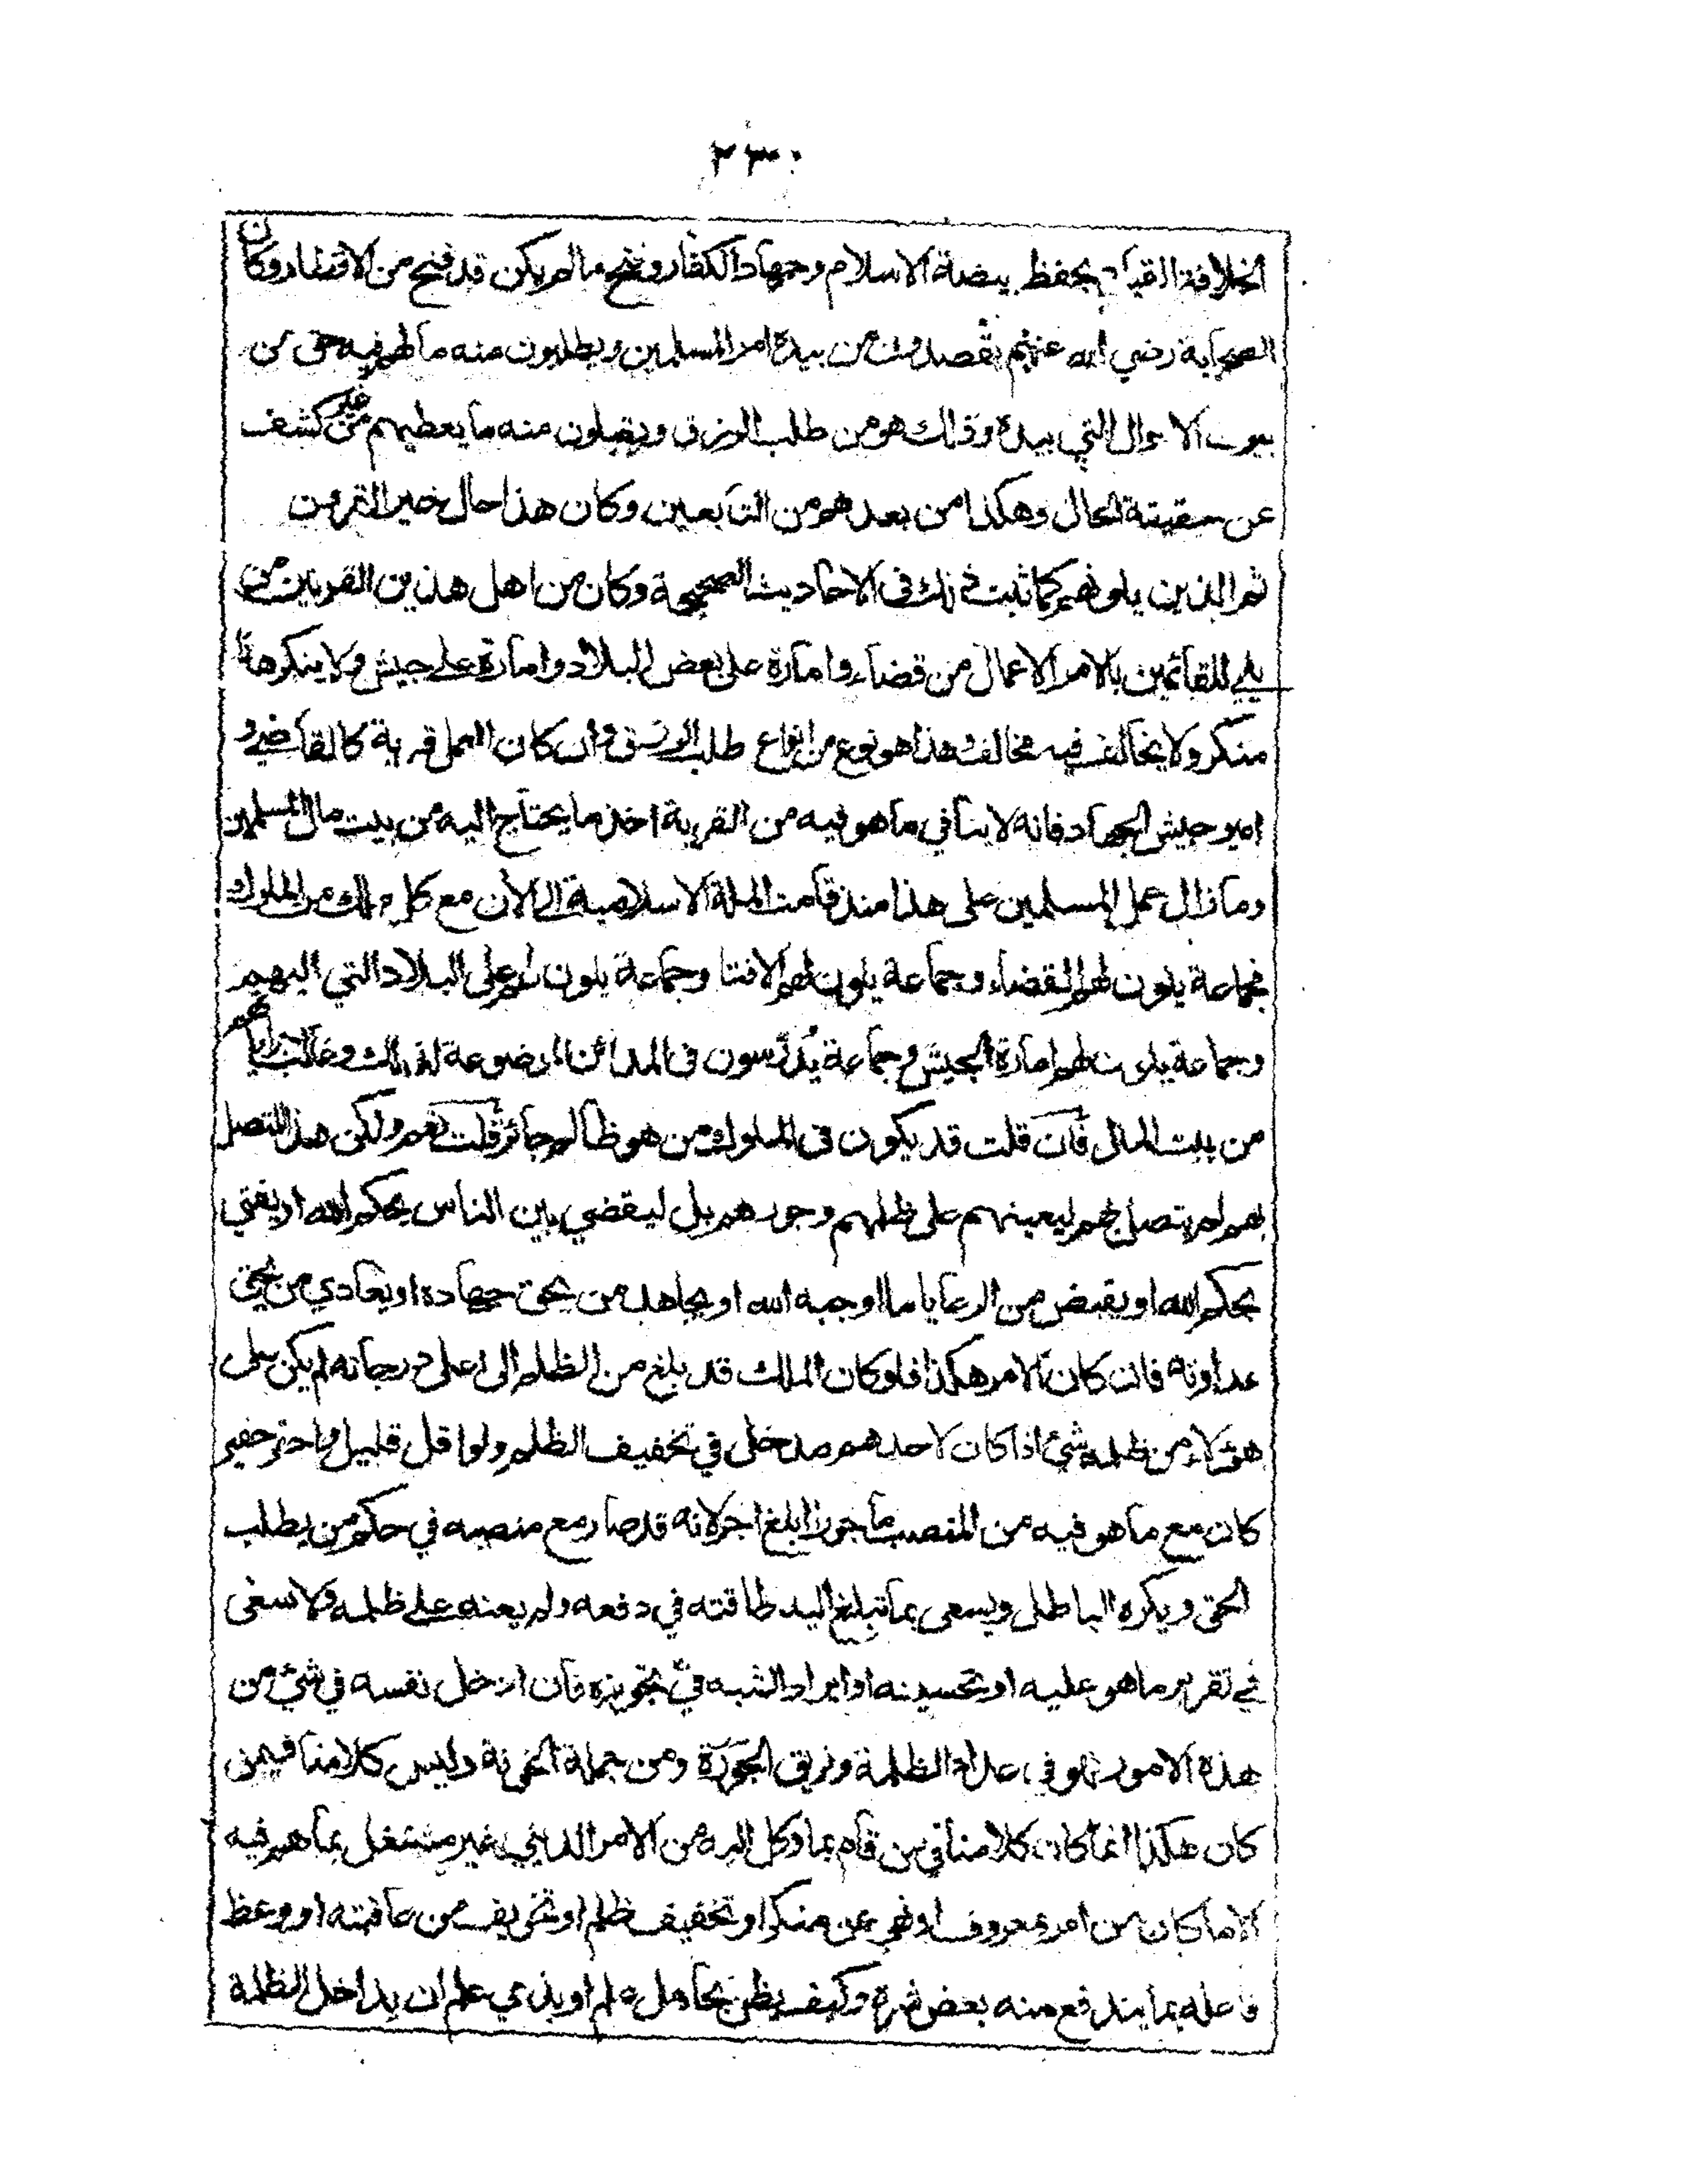 ٣٣٠
الخلافة القيام بحفظ بيضة الاسلام وجهاد الكفار وفتح مالم يكن قد فتح من الاقطار وكان
الصحابة رضي الله عنهم يقصدون من بيده امر المسلمين ويطلبون منه ما لهم فيه حق من
بيوت الاموال التي بيده وذلك هو من طلب الرزق ويقبلون منه ما يعطيهم من غير كشف
عن حقيقة الحال وهكذا من بعدهم من التابعين وكان هذا حال خير القرون
ثم الذين يلونهم كما ثبت ذلك في الاحاديث الصحيحة وكان من اهل هذين القرنين من
يلي للقائمين بالامر الاعمال من قضاء وامارة على بعض البلاد وامارة على جيش ولا ينكر هذا
منكر ولا يخالف فيه مخالف وهذا هو نوع من انواع طلب الرزق وان كان العمل قربة كالقاضي و
امير جيش الجهاد فانه لا ينافي ما هو فيه من القربة اخذ ما يحتاج اليه من بيت مال المسلمين
وما زال عمل المسلمين على هذا منذ قامت الملة الاسلامية الى الأن مع كل ملك من الملوك
فجماعة يلون لهم القضاء وجماعة يلون لهم الافتا وجماعة يلون لهم على البلاد التي اليهم
وجماعة يلون لهم امارة الجيش وجماعة يُدَرِّسون في المدائن الموضوعة لذلك وغالب
من بيت المال فان قلت قد يكون في الملوك من هو ظالم جائر قلت نعم ولكن هذا المتصل
بهم لم يتصل بهم ليعينهم على ظلمهم وجورهم بل ليقضي بين الناس بحكم الله او يفتي
بحكم الله او يقبض من الرعايا ما اوجبه الله او يجاهد من يحق جهاده او يعادي من يحق
عداوته فان كان الامر هكذا فلو كان الملك قد بلغ من الظلم الى اعلى درجاته لم يكن على
هؤلاء من ظلمه شئ اذا كان لاحدهم مدخل في تخفيف الظلم ولو اقل قليل واحقر حقير
كان مع ما هو فيه من المنصب ماجورا ابلغ اجر لانه قد صار مع منصبه في حكم من يطلب
الحق ويكره الباطل ويسعى بما تبلغ اليه طاقته في دفعه ولم يعنه على ظلمه ولا سعى
في تقرير ما هو عليه او تحسينه او ايراد الشبه في تجويزه فان ادخل نفسه في شئ من
هذه الامور فهو في عداد الظلمة وفريق الجَوَرَة ومن جملة الخونة وليس كلامنا فيمن
كان هكذا انما كان كلامنا في من قام بما وكل اليه من الامر الديني غير مشتغل بما هم فيه
الا ما كان من امر بمعروف او نهي عن منكر او تخفيف ظلم او تخويف من عاقبته او وعظ
فاعله بما يندفع منه بعض شره وكيف يظن بحامل علم او بذي علم ان يداخل الظلمة